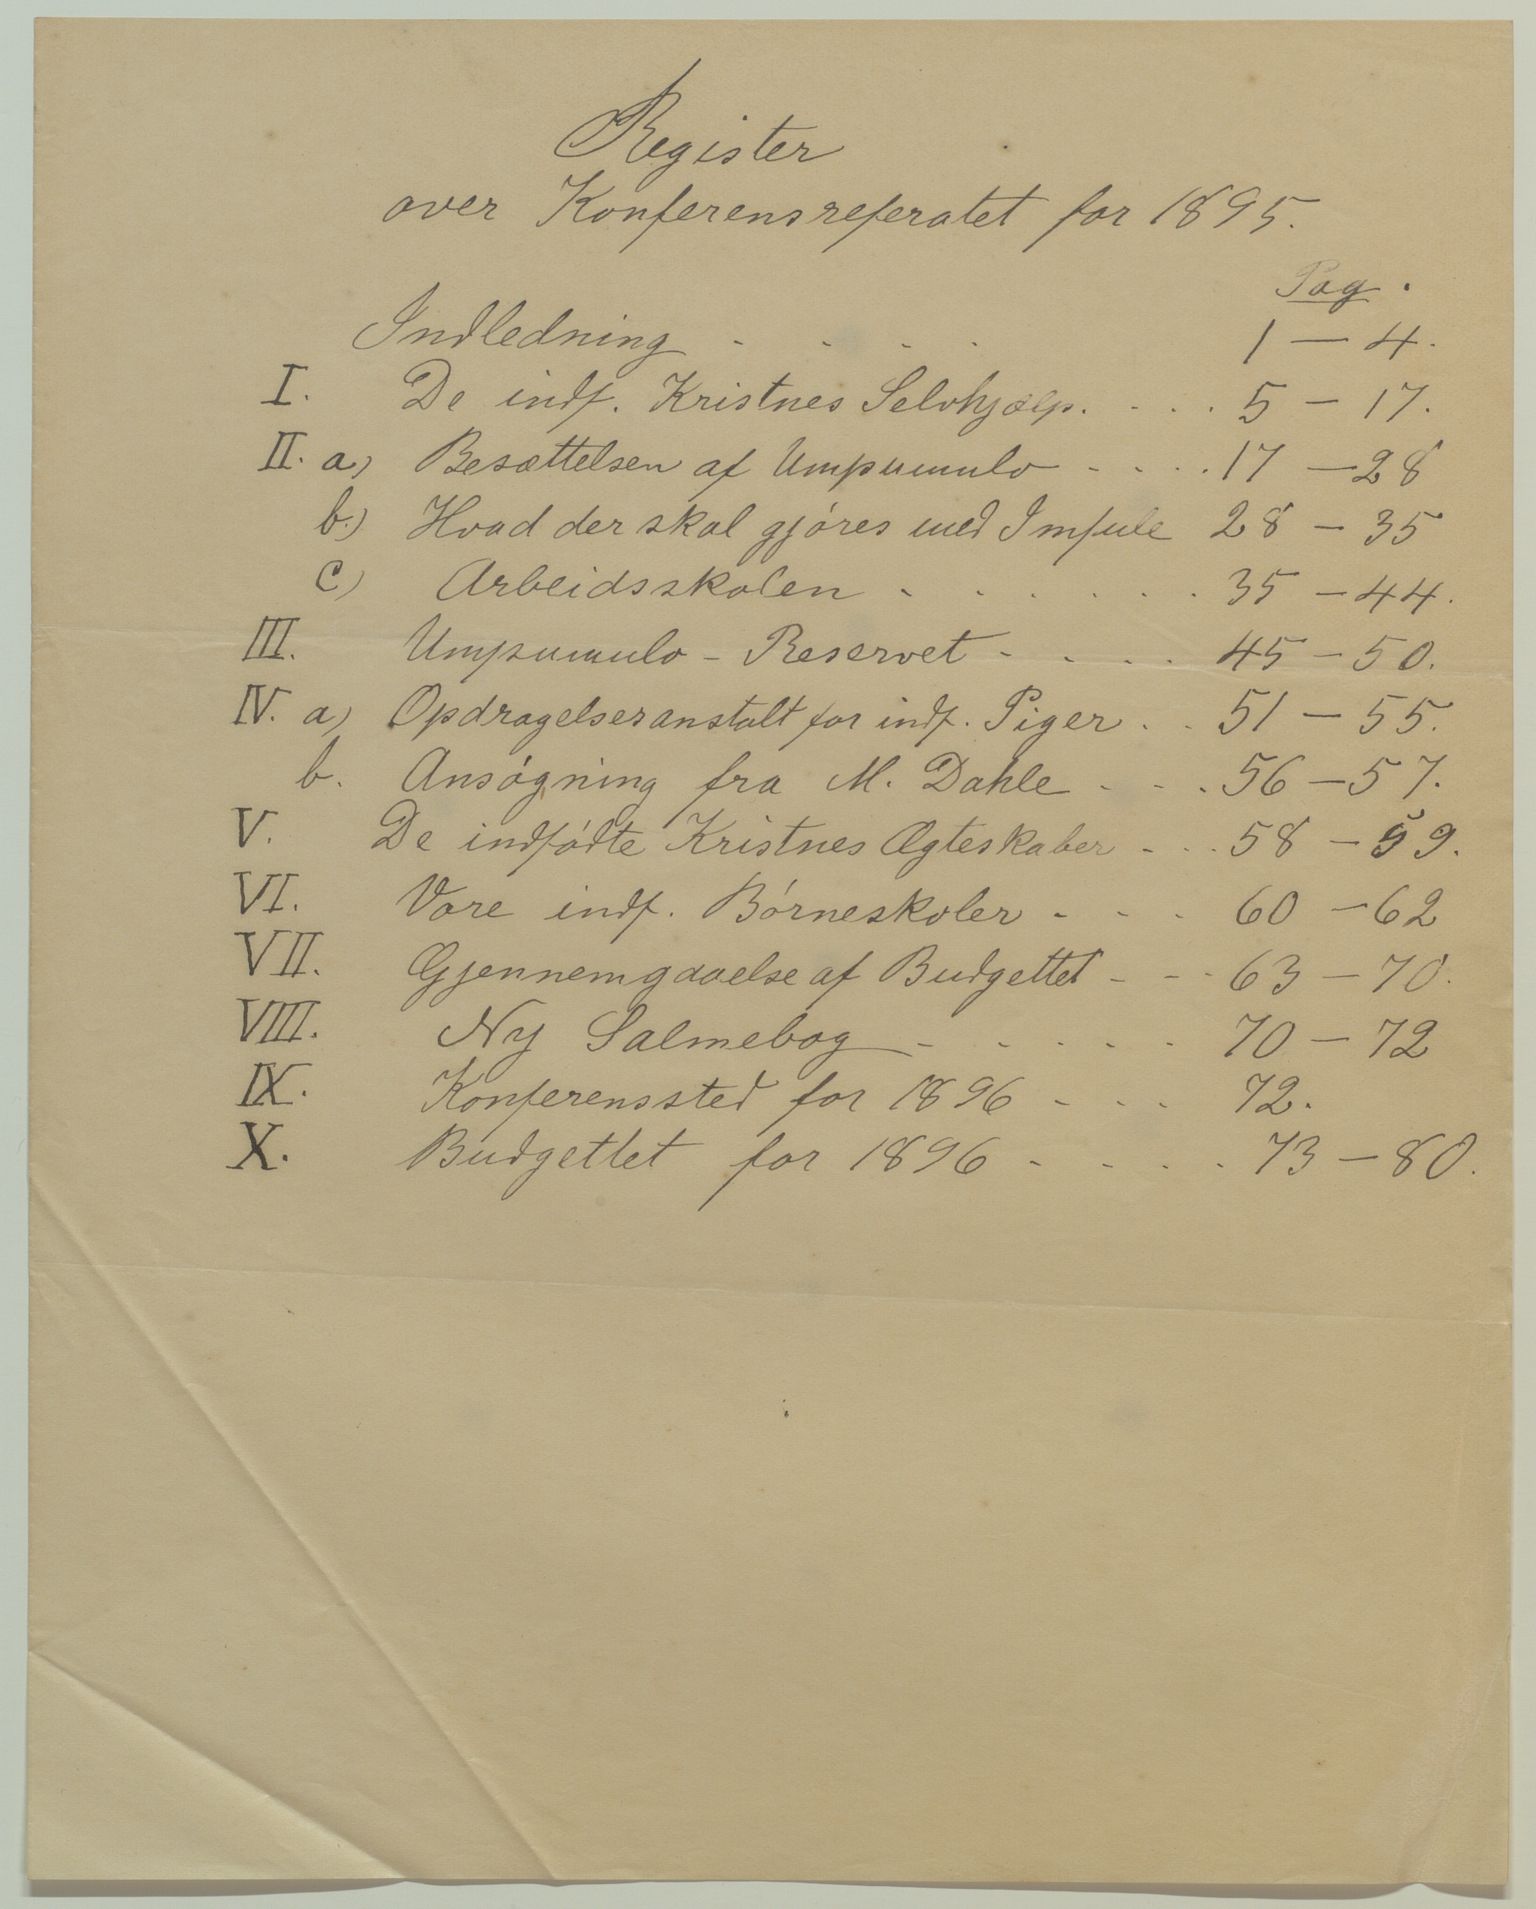 Register
over Konferensreferatet for 1895.
Pag.
Indledning - - - - 1 — 4.
I. De indf. Kristnes Selvhjælp. - - - 5 — 17.
II. a) Besættelsen af Umpumulo - - - - 17 — 28
b.) Hvad der skal gjøres med Imfule 28 — 35
c) Arbeidsskolen - - - - - - 35 — 44.
III. Umpumulo - Reservet - - - - 45 — 50.
IV. a) Opdragelsesanstalt for indf. Piger - - 51 — 55.
b. Ansøgning fra M. Dahle - - - 56 — 57.
V. De indfødte Kristnes Ægteskaber - - - 58 — 59.
VI. Vore indf. Børneskoler - - - 60 — 62
VII. Gjennemgaaelse af Budgettet - - - 63 — 70.
VIII. Ny Salmebog - - - - - 70 — 72
IX. Konferenssted for 1896 - - - 72.
X. Budgettet for 1896 - - - - 73 — 80.